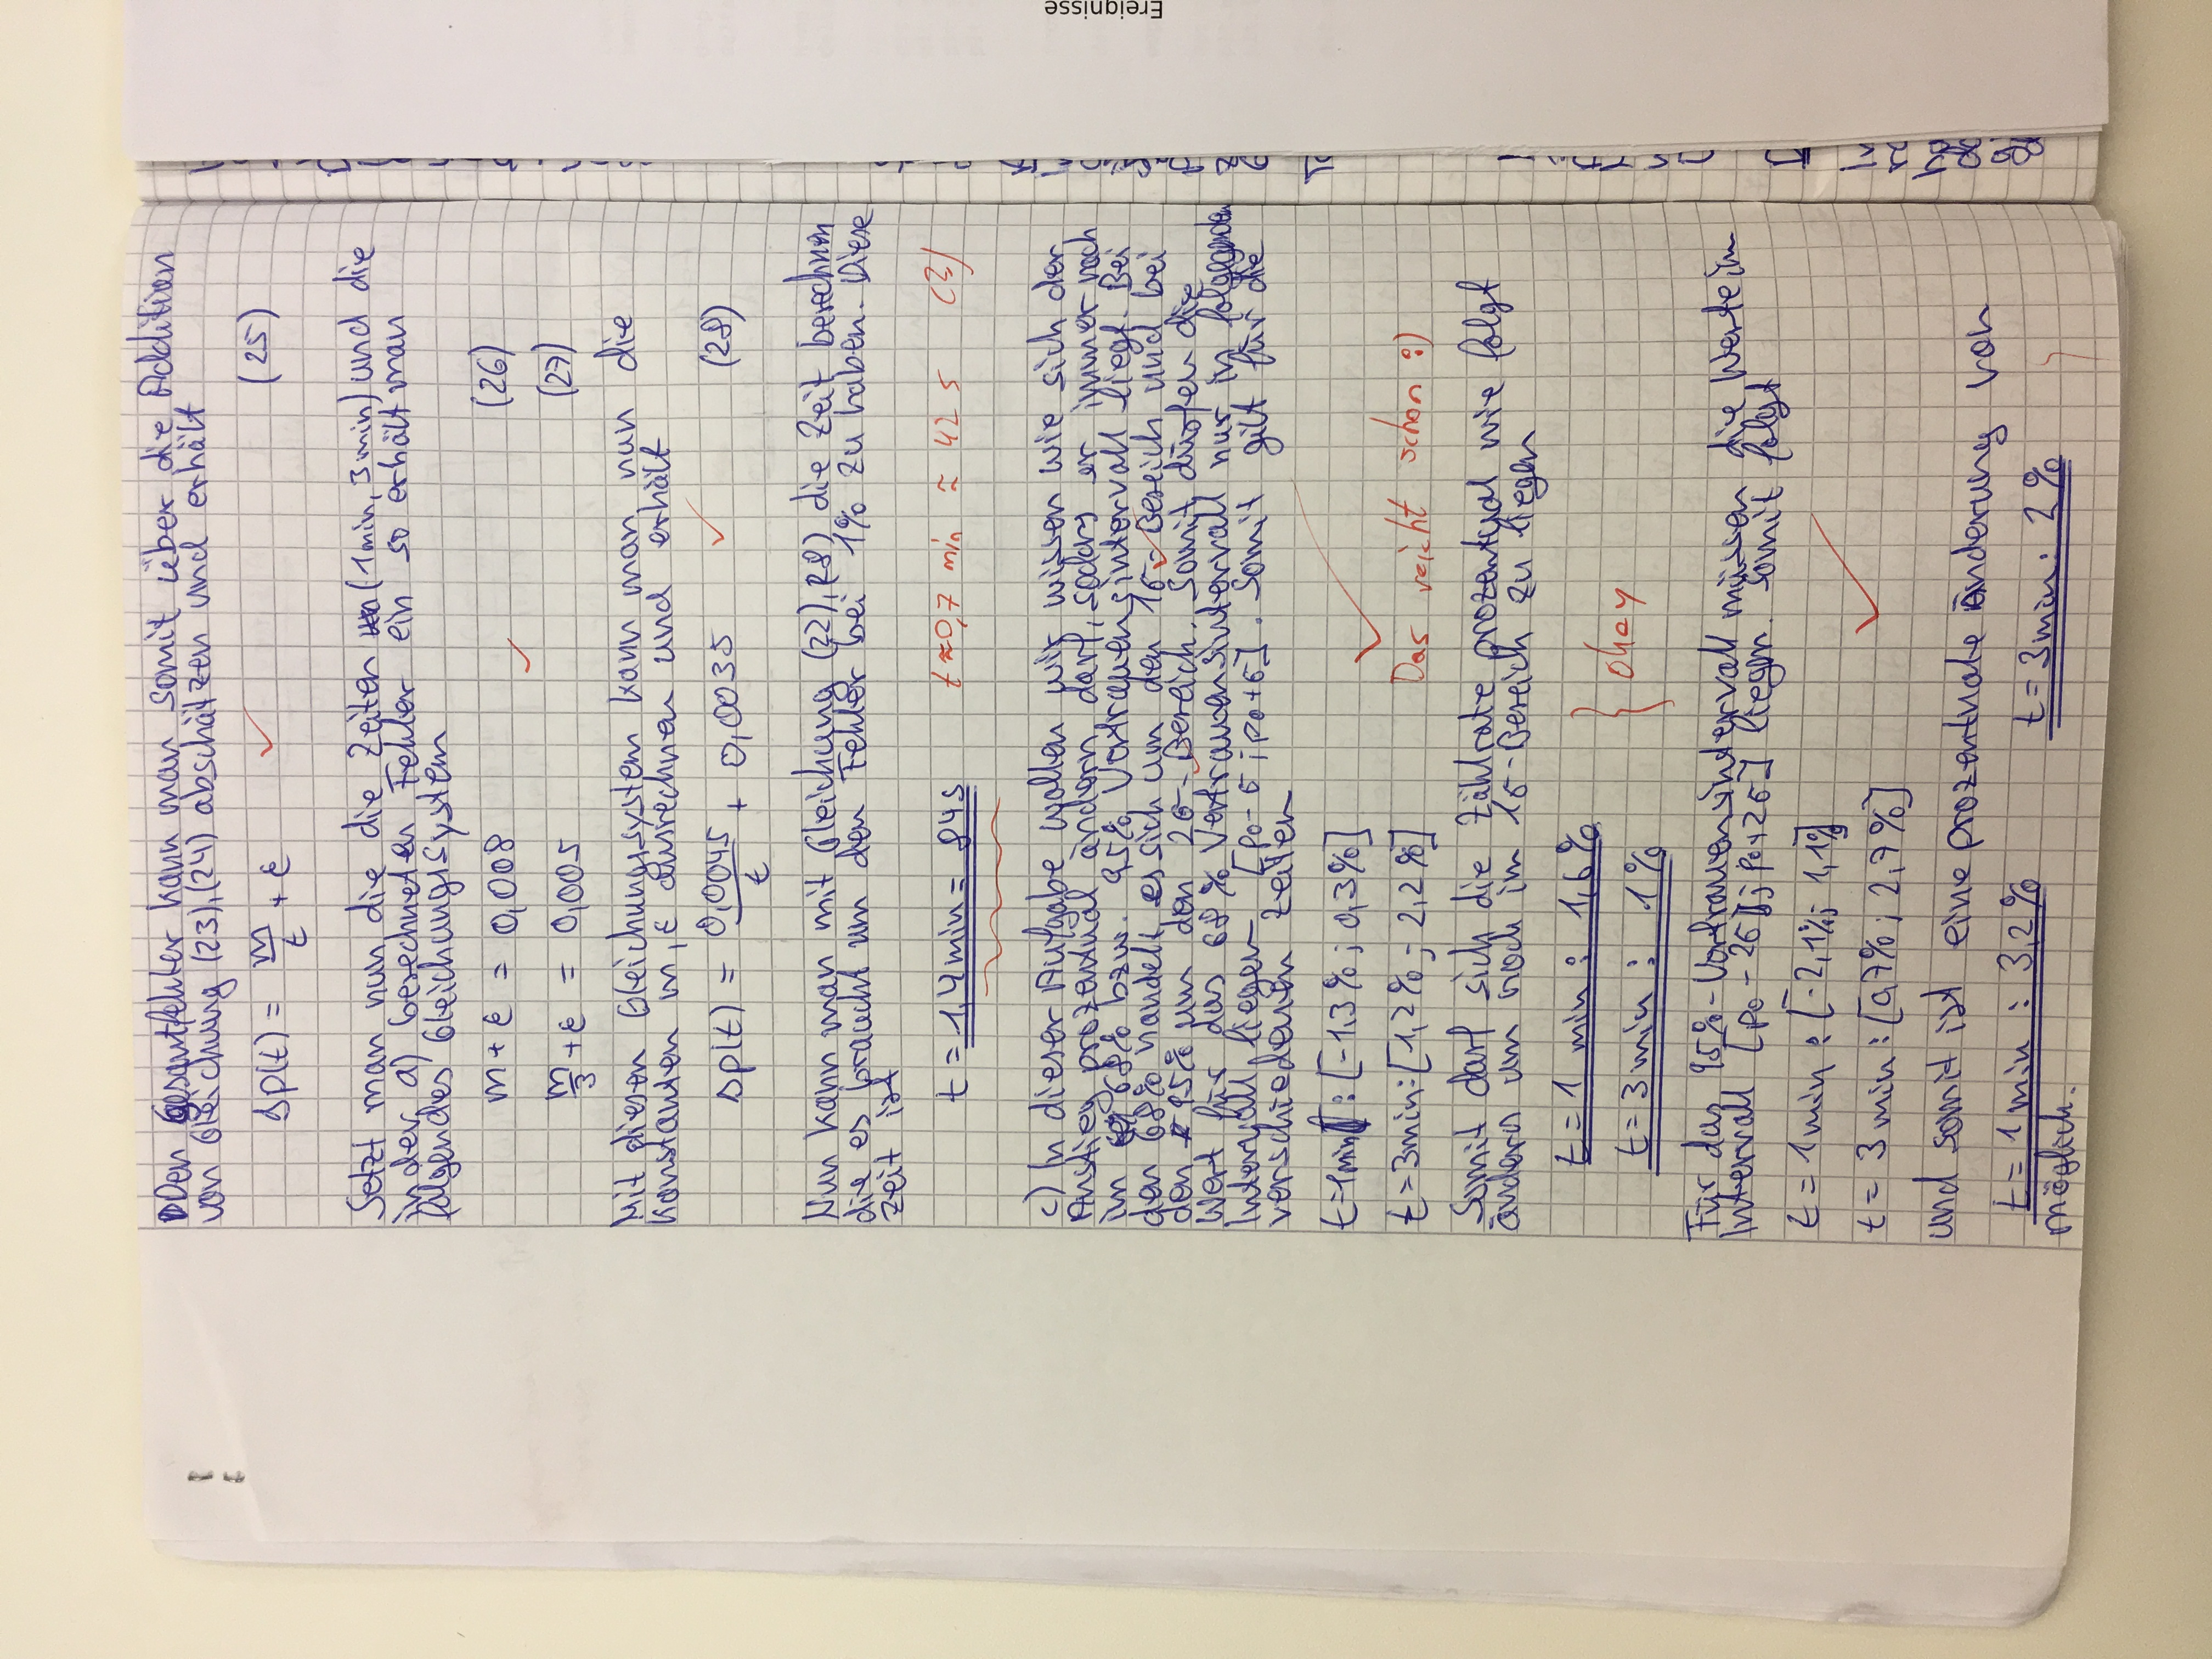 Den Gesamtfehler kann man somit über die Addition
von Gleichung (23), (24) abschätzen und erhält
Δp(t) = m/t + ε ✓ (25)
Setzt man nun die die Zeiten (1min, 3min) und die
in der a) berechneten Fehler ein so erhält man
folgendes Gleichungssystem
m + ε = 0,008 (26)
✓
m/3 + ε = 0,005 (27)
Mit diesen Gleichungssystem kann man nun die
Konstanten m, ε ausrechnen und erhält
Δp(t) = 0,0045/t + 0,0035 ✓ (28)
Nun kann man mit Gleichung (22), (28) die Zeit berechnen
die es braucht um den Fehler bei 1% zu haben. Diese
Zeit ist
t = 1,4min = 84s t ≈ 0,7 min ≈ 42 s (?)
c) In dieser Aufgabe wollen wir wissen wie sich der
Anstieg prozentual ändern darf, sodass er immer noch
im 68% bzw. 95% Vertrauensintervall liegt. Bei
den 68% handelt es sich um den 1σ-Bereich und bei
den 95% um den 2σ-Bereich. Somit dürfen die
Wert für das 68% Vertrauensintervall nur in folgenden
Intervall liegen [p₀-σ ; p₀+σ]. Somit gilt für die
verschiedenen Zeiten
t=1min : [-1,3% ; 0,3%]
✓
t=3min: [1,2% ; 2,2%] Das reicht schon :)
Somit darf sich die Zählrate prozentual wie folgt
ändern um noch im 1σ-Bereich zu liegen
t = 1 min : 1,6%
} okay
t = 3 min : 1%
Für das 95%-Vertrauensintervall müssen die Werte im
Intervall [p₀ - 2σ ; p₀+2σ] liegen. Somit folgt
t = 1min : [-2,1% ; 1,1%]
✓
t = 3 min : [0,7% ; 2,7%]
und somit ist eine prozentuale Änderung von
t = 1 min : 3,2% t = 3min : 2%
möglich.
Ereignisse